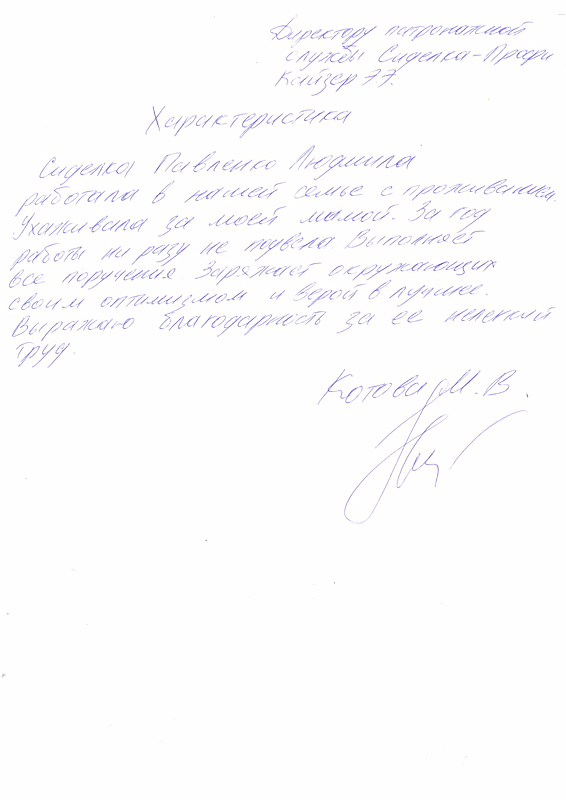 Директору патронажной
службы Сиделка-Профи
Кайзер Э.Э.
Характеристика
Сиделка Павленко Людмила
работала в нашей семье с проживанием.
Ухаживала за моей мамой. За год
работы ни разу не подвела Выполняет
все поручения Заряжает окружающих
своим оптимизмом и верой в лучшее.
Выражаю благодарность за ее нелегкий
труд.
Котова М. В.